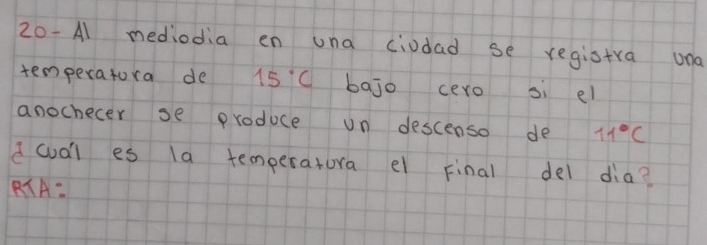 20- Al mediodia en una ciudad se registra una
temperatura de 15°C bajo cero si el
anochecer se produce un descenso de 11°C
¿ cual es la temperatura el Final del dia?
RTA: